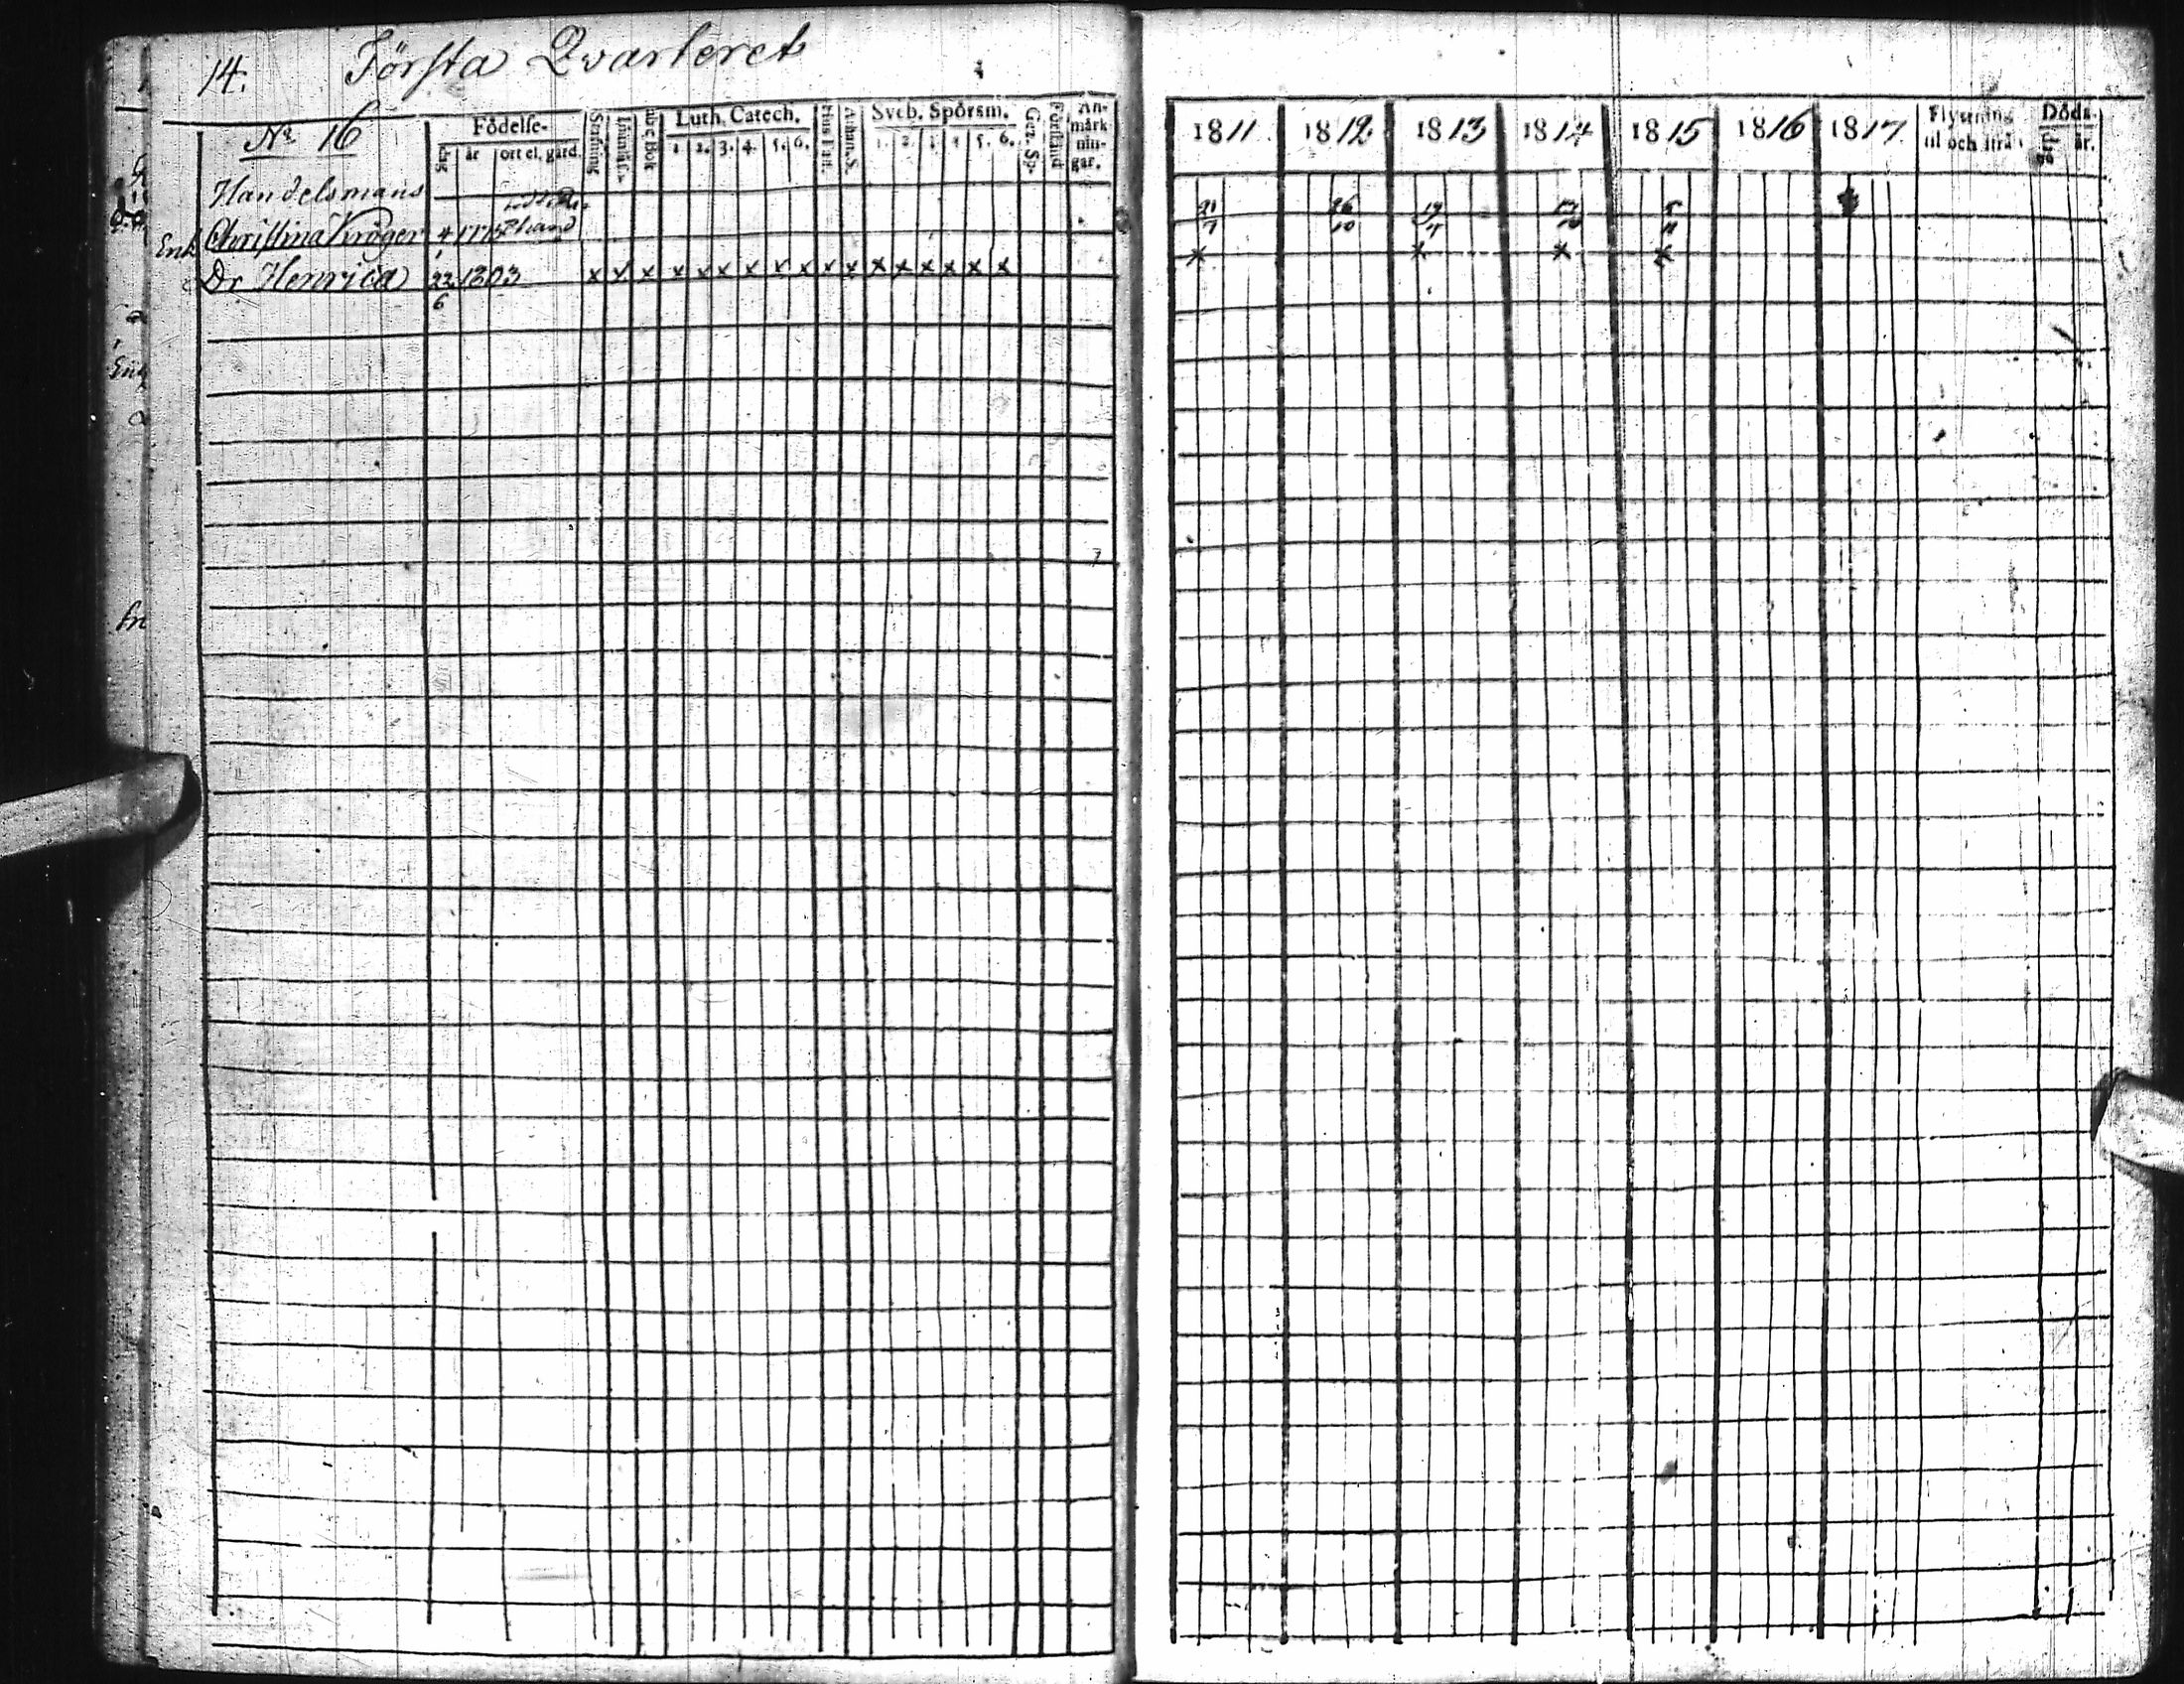 14. Första Qvarteret
No 16
Födelse-
dag år ort el. gård.
Stafning
ab c Bok
Luth. Catech.
1. 2. 3. 4. 5. 6.
Athan. S.
Sveb. Spörsm.
1. 2. 3. 4. 5. 6.
Gez. Sp.
Förstånd
An-
märk-
nin-
gar.
1811 1812 1813 1814 1815 1816 1817
Flyttning
til och ifrån
Döds-
dag år.
Handelsmans
Enk Christina Kröger 4 1775
1
Dr Henrica 22 1803 x x x x x x x x x x x x x x x x x
6
21 26 19 5
7 10 4 11